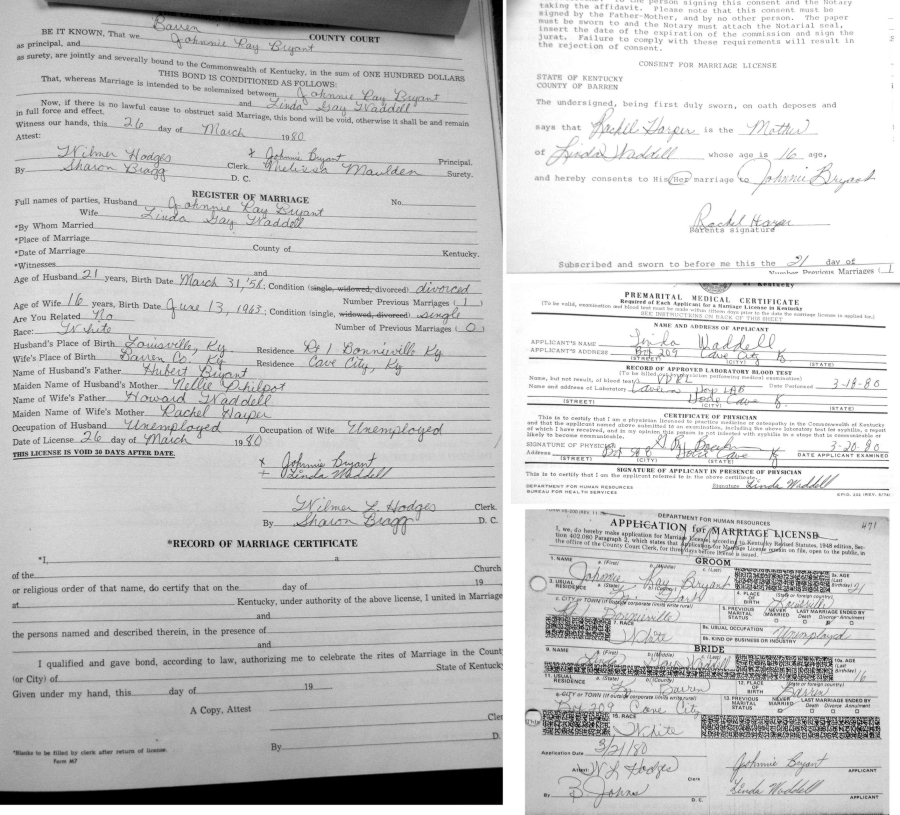 Barren
BE IT KNOWN, That we COUNTY COURT
as principal, and Johnnie Ray Bryant
as surety, are jointly and severally bound to the Commonwealth of Kentucky, in the sum of ONE HUNDRED DOLLARS
THIS BOND IS CONDITIONED AS FOLLOWS:
That, whereas Marriage is intended to be solemnized between Johnnie Ray Bryant
and Linda Gay Waddell
Now, if there is no lawful cause to obstruct said Marriage, this bond will be void, otherwise it shall be and remain
in full force and effect.
Witness our hands, this 26 day of March 1980
Attest:
x Johnnie Bryant Principal.
Wilmer Hodges Clerk. Melissa Maulden Surety.
By Sharon Bragg D. C.
REGISTER OF MARRIAGE
Full names of parties, Husband Johnnie Ray Bryant No.
Wife Linda Gay Waddell
*By Whom Married
*Place of Marriage
*Date of Marriage County of Kentucky.
*Witnesses and
Age of Husband 21 years, Birth Date March 31, '58; Condition (single, widowed, divorced) divorced
Number Previous Marriages ( 1 )
Age of Wife 16 years, Birth Date June 13, 1963; Condition (single, widowed, divorced) single
Are You Related No Number of Previous Marriages ( 0 )
Race: White
Husband's Place of Birth Louisville, Ky Residence Rt 1 Bonnieville Ky
Wife's Place of Birth Barren Co, Ky Residence Cave City, Ky
Name of Husband's Father Hubert Bryant
Maiden Name of Husband's Mother Nellie Philpot
Name of Wife's Father Howard Waddell
Maiden Name of Wife's Mother Rachel Harper
Occupation of Husband Unemployed Occupation of Wife Unemployed
Date of License 26 day of March 1980
THIS LICENSE IS VOID 30 DAYS AFTER DATE.
x Johnnie Bryant
+ Linda Waddell
Wilmer L. Hodges Clerk.
By Sharon Bragg D. C.
*RECORD OF MARRIAGE CERTIFICATE
*I, a
of the Church
or religious order of that name, do certify that on the day of 19
at Kentucky, under authority of the above license, I united in Marriage
and
the persons named and described therein, in the presence of
and
I qualified and gave bond, according to law, authorizing me to celebrate the rites of Marriage in the Count
(or City) of State of Kentuck
Given under my hand, this day of 19
A Copy, Attest
Cler
By D.
*Blanks to be filled by clerk after return of license.
Form 467
to the person signing this consent and the Notary
taking the affidavit. Please note that this consent must be
signed by the Father-Mother, and by no other person. The paper
must be sworn to and the Notary must attach the Notarial seal,
insert the date of the expiration of the commission and sign the
jurat. Failure to comply with these requirements will result in
the rejection of consent.
CONSENT FOR MARRIAGE LICENSE
STATE OF KENTUCKY
COUNTY OF BARREN
The undersigned, being first duly sworn, on oath deposes and
says that Rachel Harper is the Mother
of Linda Waddell whose age is 16 age,
and hereby consents to His(Her marriage to Johnnie Bryant
Rachel Harper
Parents signature
Subscribed and sworn to before me this the 21 day of
Number Previous Marriages ( 1
of Kentucky
PREMARITAL MEDICAL CERTIFICATE
Required of Each Applicant for a Marriage License in Kentucky
(To be valid, examination and blood test must be made within fifteen days prior to the date the marriage license is applied for.)
SEE INSTRUCTIONS ON BACK OF THIS SHEET
NAME AND ADDRESS OF APPLICANT
APPLICANT'S NAME Linda Waddell
APPLICANT'S ADDRESS Box 209 Cave City Ky
(STREET) (CITY) (STATE)
RECORD OF APPROVED LABORATORY BLOOD TEST
(To be filled out by physician performing medical examination)
Name, but not result, of blood test VDRL Date Performed 3-18-80
Name and address of Laboratory Cavern Hosp LAB
Horse Cave Ky.
(STREET) (CITY) (STATE)
CERTIFICATE OF PHYSICIAN
This is to certify that I am a physician licensed to practice medicine or osteopathy in the Commonwealth of Kentucky
and that the applicant named above submitted to an examination, including the above laboratory test for syphilis, a report
of which I have received, and in my opinion this person is not infected with syphilis in a stage that is communicable or
likely to become communicable.
SIGNATURE OF PHYSICIAN 3-20-80
Address Horse Cave Ky DATE APPLICANT EXAMINED
(STREET) (CITY) (STATE)
SIGNATURE OF APPLICANT IN PRESENCE OF PHYSICIAN
This is to certify that I am the applicant referred to in the above certificate.
Signature Linda Waddell
DEPARTMENT FOR HUMAN RESOURCES
BUREAU FOR HEALTH SERVICES
EPID. 232 (REV. 5/74)
DEPARTMENT FOR HUMAN RESOURCES 491
APPLICATION for MARRIAGE LICENSE
I, we, do hereby make application for Marriage License, according to Kentucky Revised Statutes, 1948 edition, Sec-
tion 402.080 Paragraph 2, which states that Application for Marriage License remain on file, open to the public, in
the office of the County Court Clerk, for three days before license is issued.
GROOM
1. NAME a (First) b (Middle) c (Last) 2a. AGE (Last Birthday) 21
Johnny Ray Bryant
3. USUAL RESIDENCE a. (State) b. (County) 4. PLACE OF BIRTH (State or foreign country)
Ky. Hart Louisville
c. CITY OR TOWN (If outside corporate limits write rural) 5. PREVIOUS MARITAL STATUS NEVER MARRIED LAST MARRIAGE ENDED BY Death Divorce Annulment
Bonnieville
7. RACE White 8a. USUAL OCCUPATION Unemployed
8b. KIND OF BUSINESS OR INDUSTRY
BRIDE
9. NAME a. (First) b. (Middle) c. (Last) 10a. AGE (Last Birthday) 16
Waddell
11. USUAL RESIDENCE a. (State) b. (County) 12. PLACE OF BIRTH (State or foreign country)
Ky Barren Barren
c. CITY OR TOWN (If outside corporate limits write rural) 13. PREVIOUS MARITAL STATUS NEVER MARRIED LAST MARRIAGE ENDED BY Death Divorce Annulment
Box 209 Cave City
15. RACE White
Application Date 3/21/80
Attest: W L Hodges Clerk Johnnie Bryant APPLICANT
By B Johns D. C. Linda Waddell APPLICANT